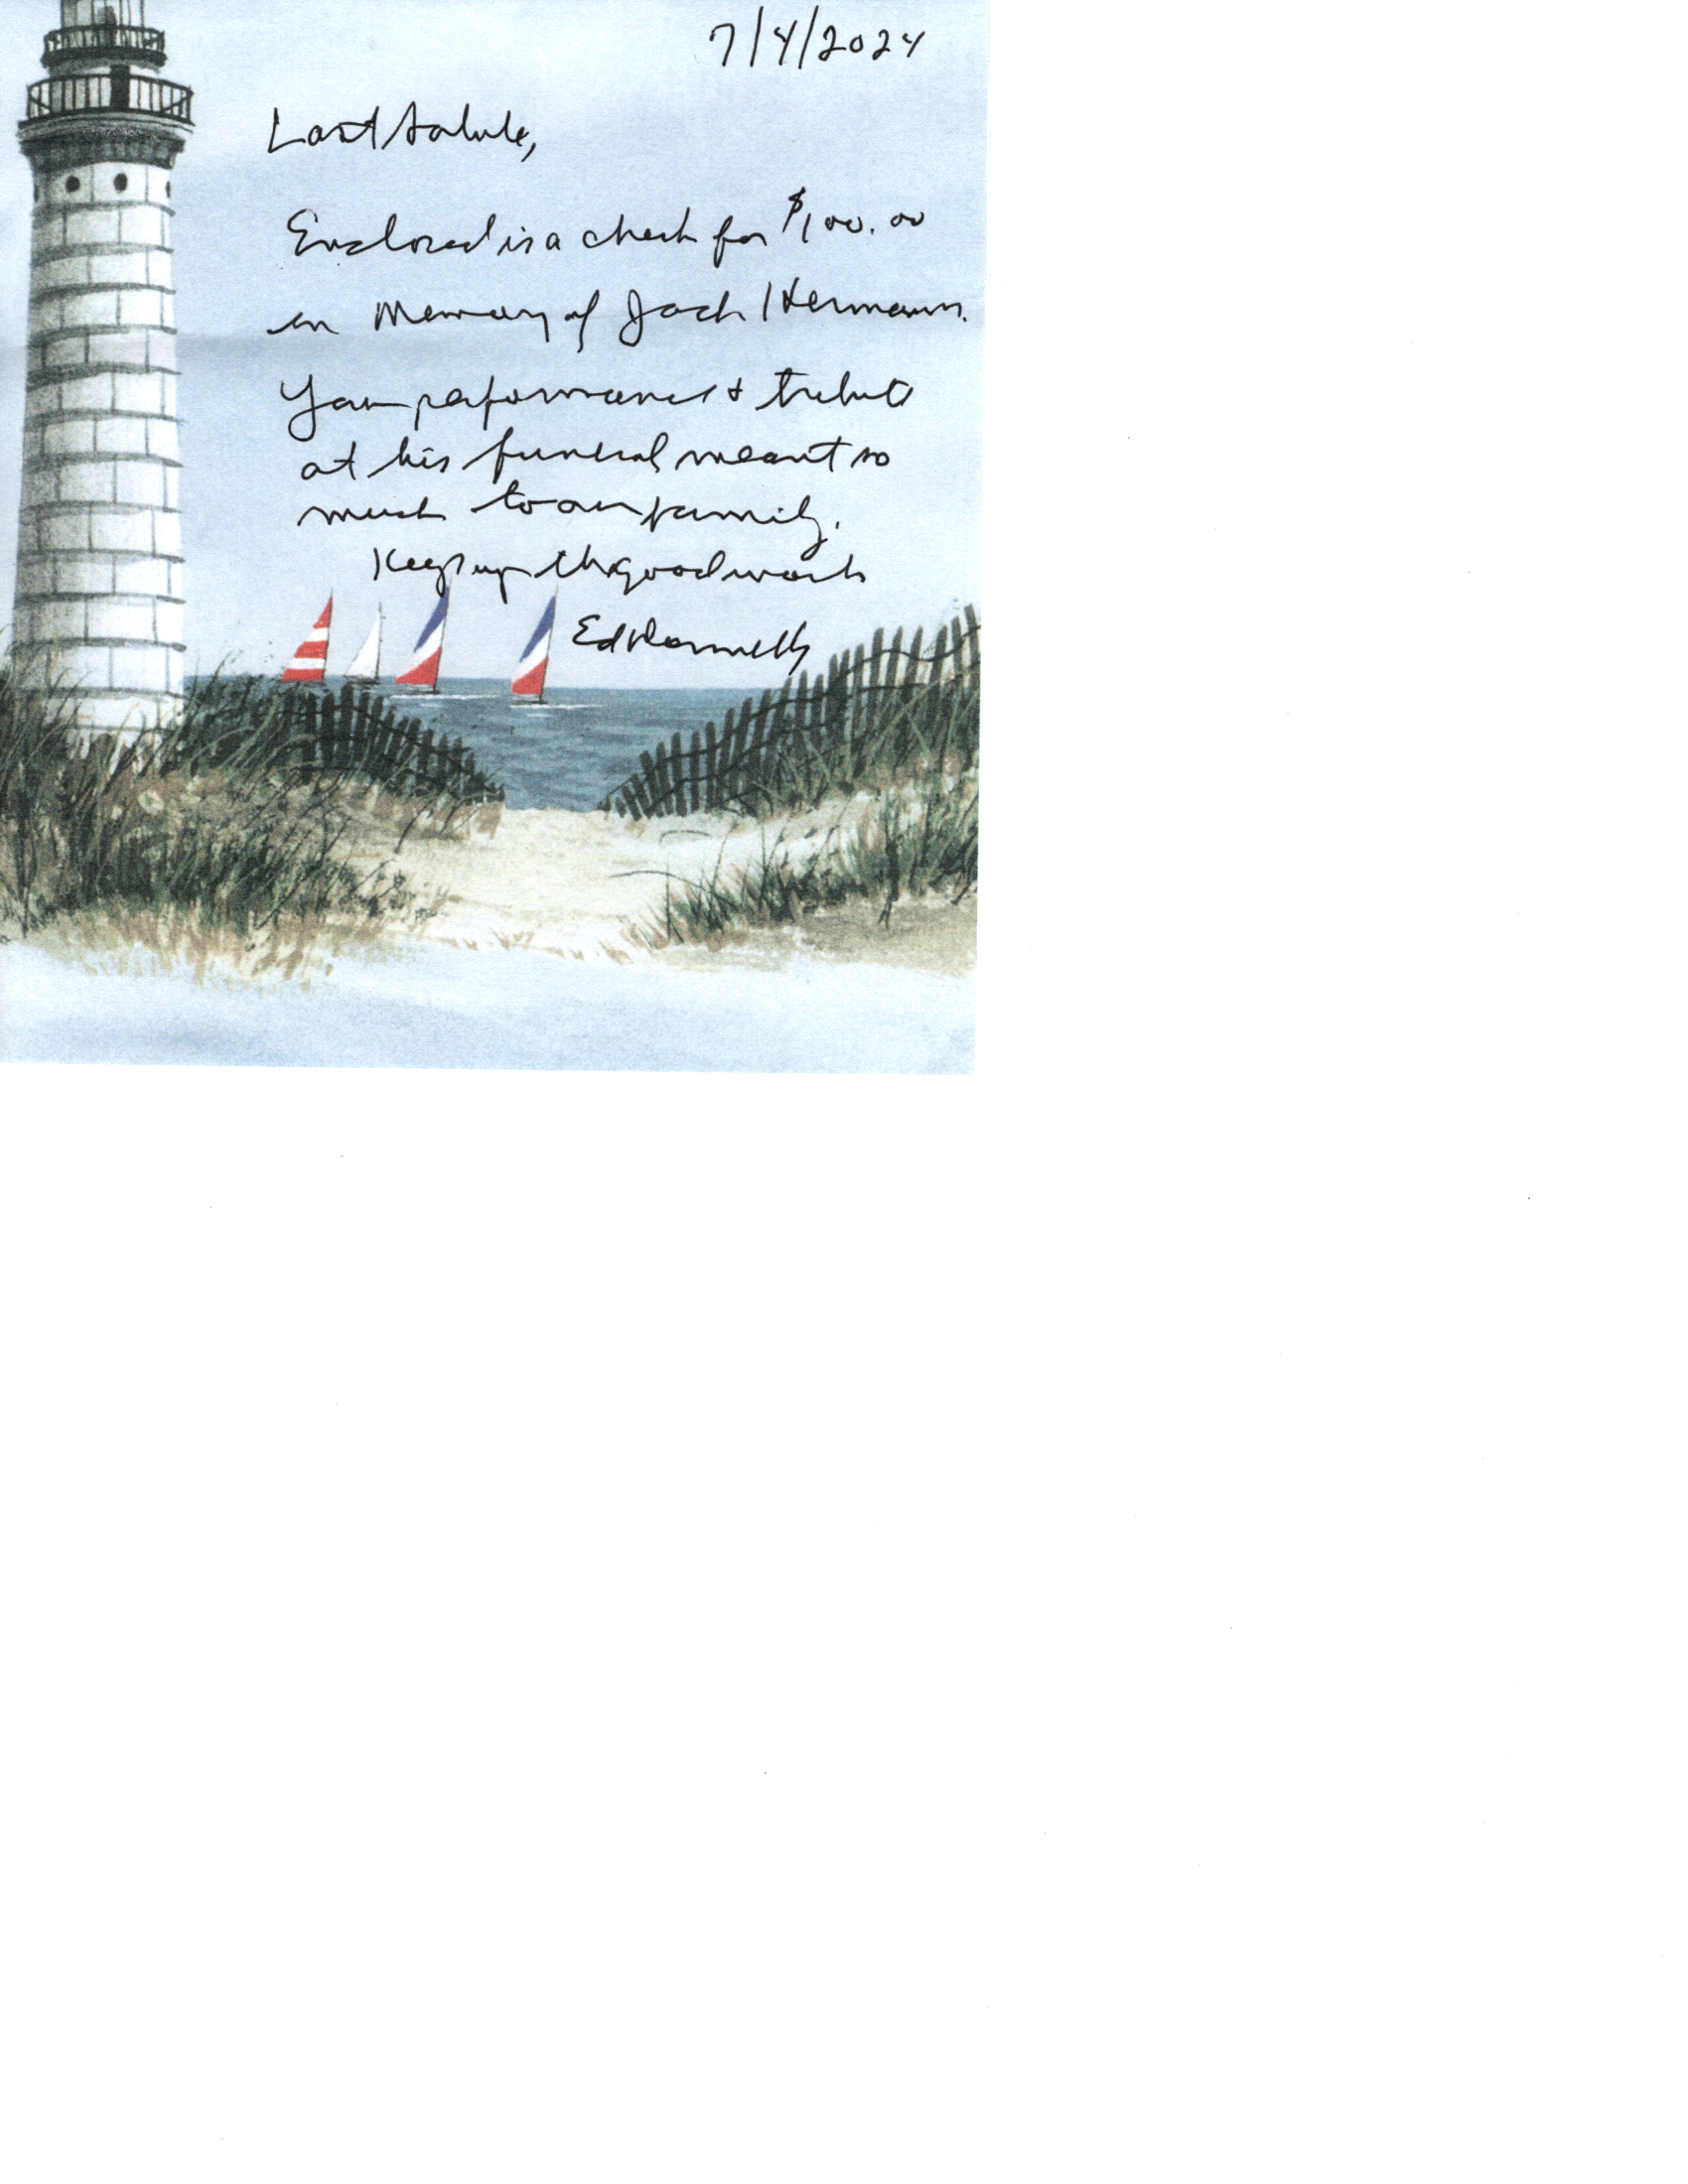 7/4/2024
Last Salute,
Enclosed is a check for $100.00
in Memory of Jack Hermann.
Your performance & tribute
at his funeral meant so
much to our family.
Keep up the good work
Ed Donnelly